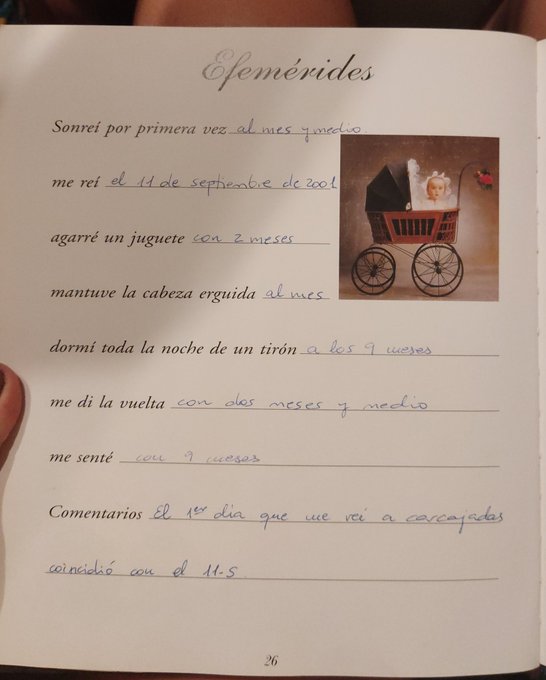 Efemérides
Sonreí por primera vez al mes y medio.
me reí el 11 de septiembre de 2001
agarré un juguete con 2 meses
mantuve la cabeza erguida al mes
dormí toda la noche de un tirón a los 9 meses
me di la vuelta con dos meses y medio
me senté con 9 meses
Comentarios El 1er día que me reí a carcajadas
coincidió con el 11-S.
26